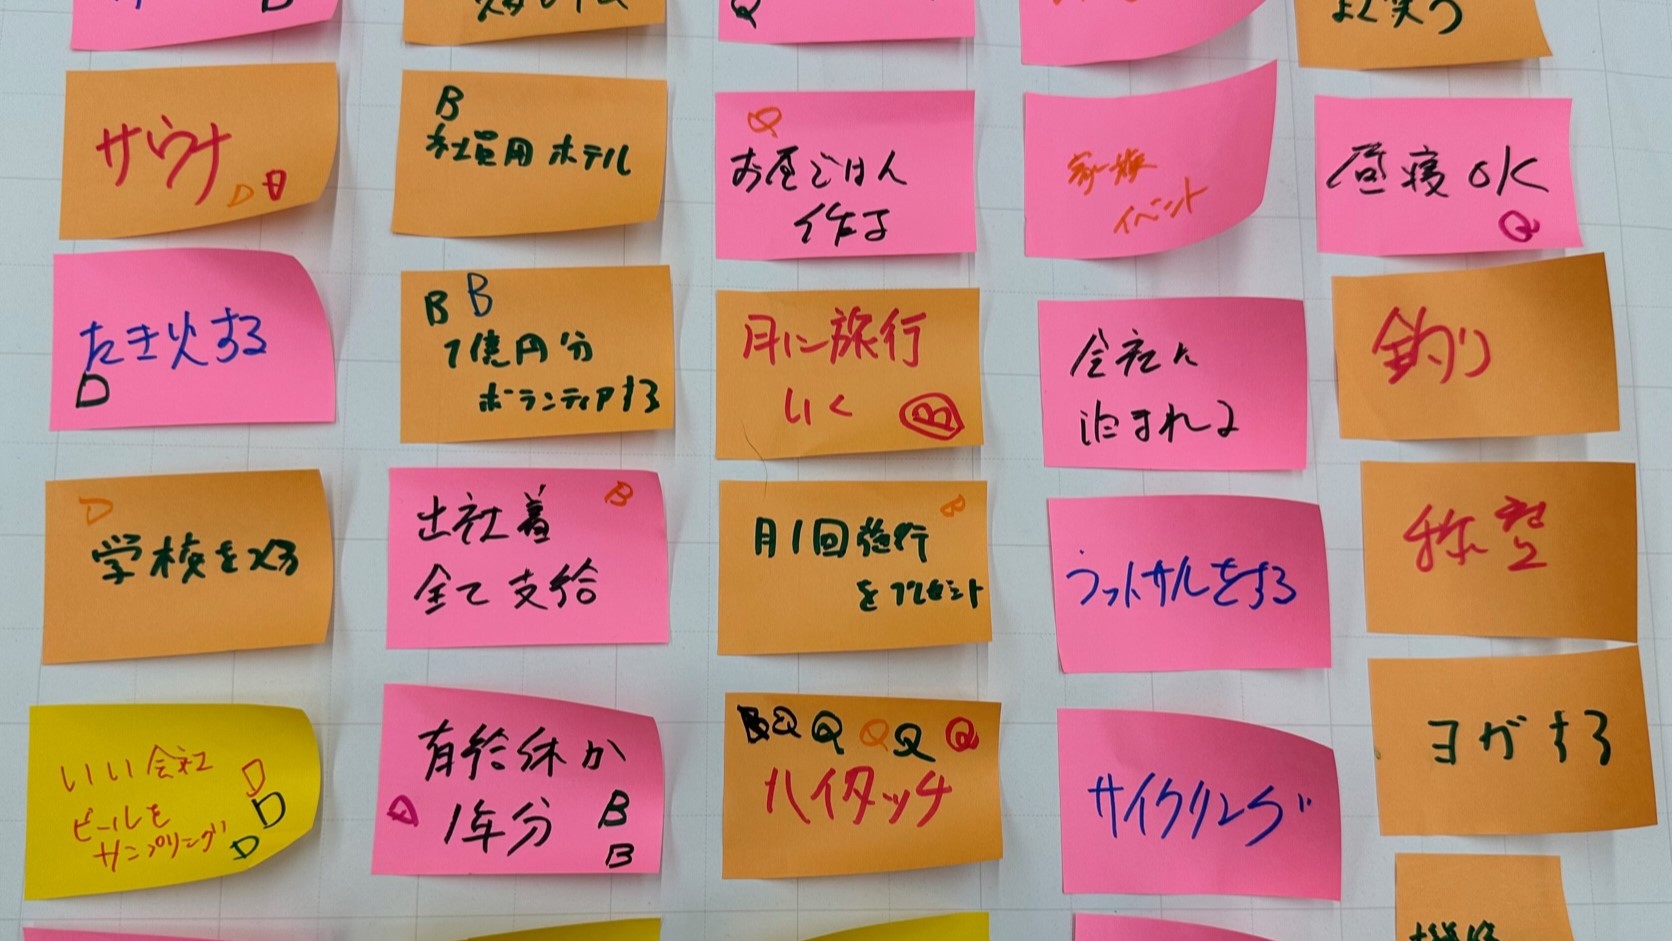 D
Q
よく笑う
サウナ
D D
B
社員用ホテル
Q
お昼ごはん
作る
家族
イベント
昼寝OK
Q
たき火する
D
B B
1億円分
ボランティアする
月に旅行
いく
B
会社に
泊まれる
釣り
D
学校を
B
出社着
全て支給
B
月1回旅行
をプレゼント
フットサルをする
いい会社
ビールを
サンプリング
D
D
D
有給休か
D
1年分
B
B
B Q Q Q Q Q
ハイタッチ
サイクリング
ヨガする